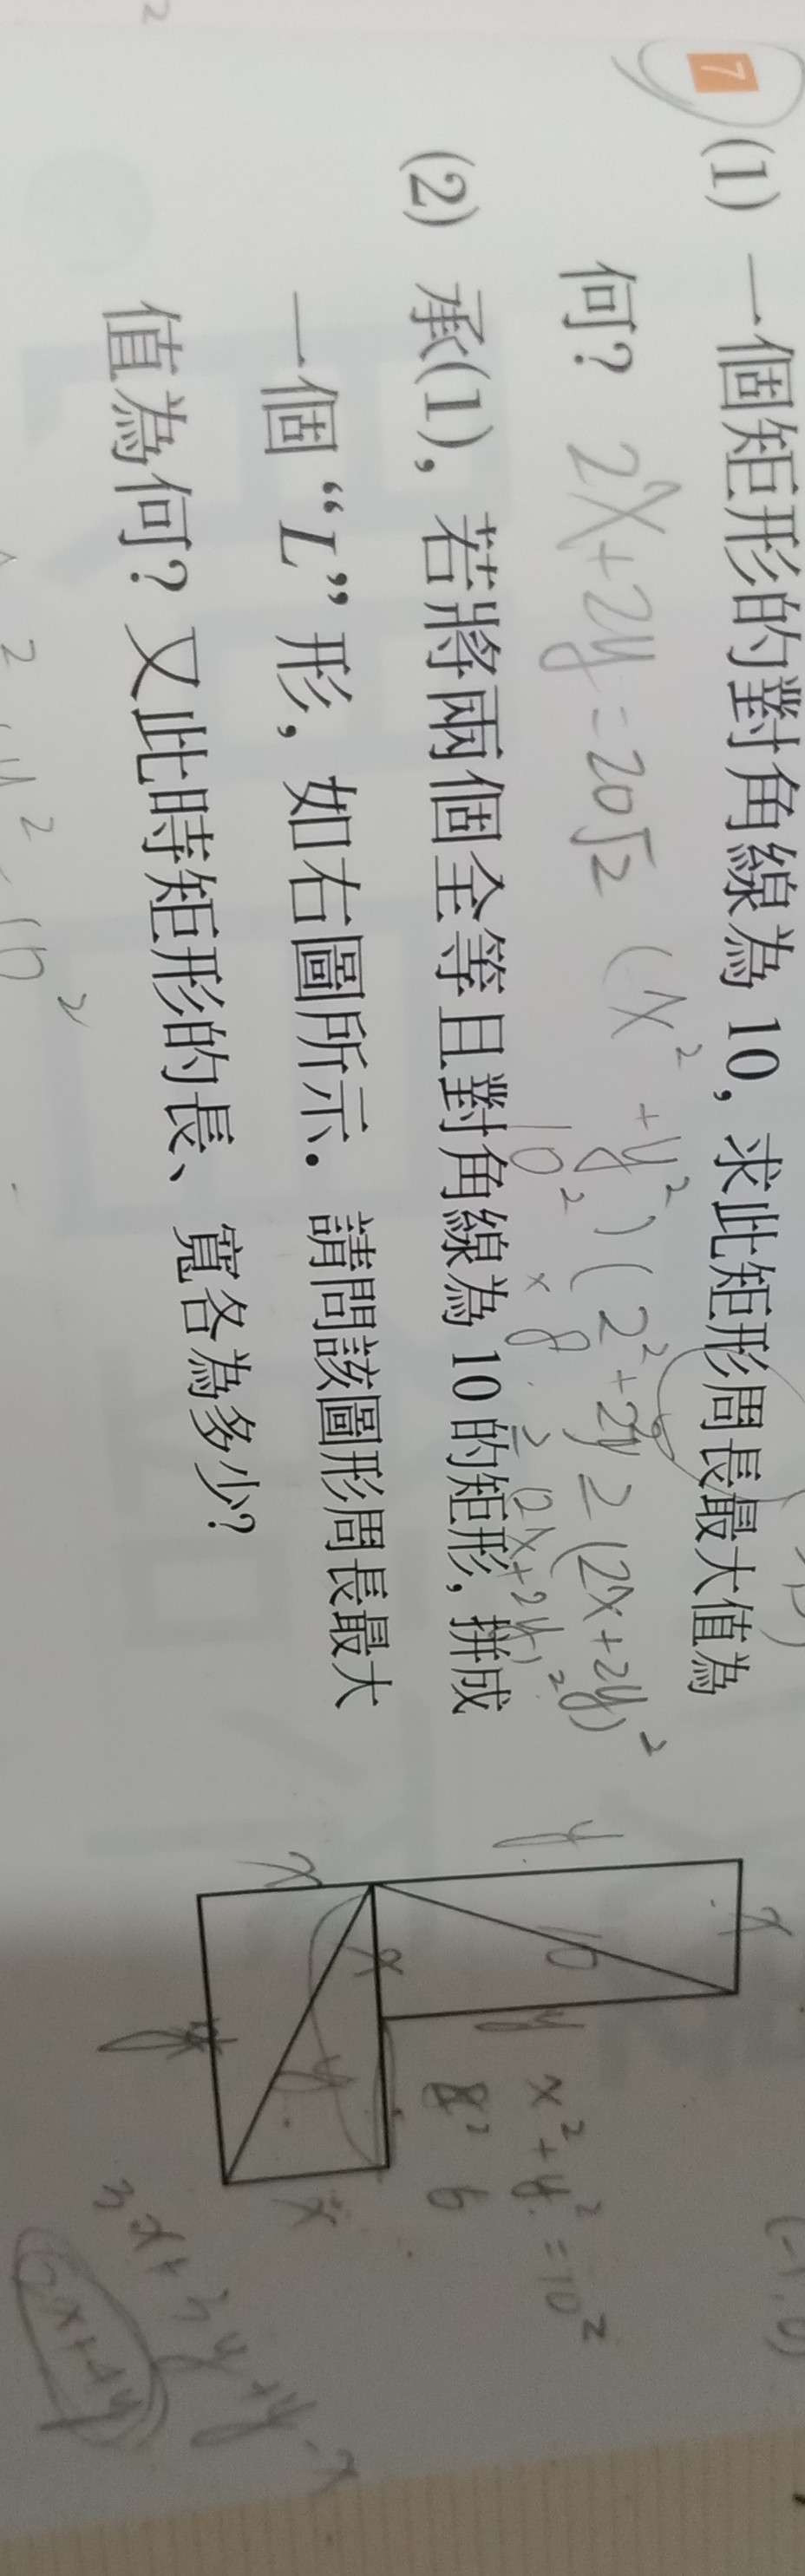 7 (1) 一個矩形的對角線為 10, 求此矩形周長最大值為
何? 2x+2y=20√2 (x²+y²)(2²+2²) ≥ (2x+2y)²
10² × 8 ≥ (2x+2y)²
(2) 承(1), 若將兩個全等且對角線為 10 的矩形, 拼成
一個 “L” 形, 如右圖所示. 請問該圖形周長最大
值為何? 又此時矩形的長、寬各為多少?
x
y
10
y
x
x
y
x
y
x²+y²=10²
8, 6
3x+3y+y-x
2x+4y